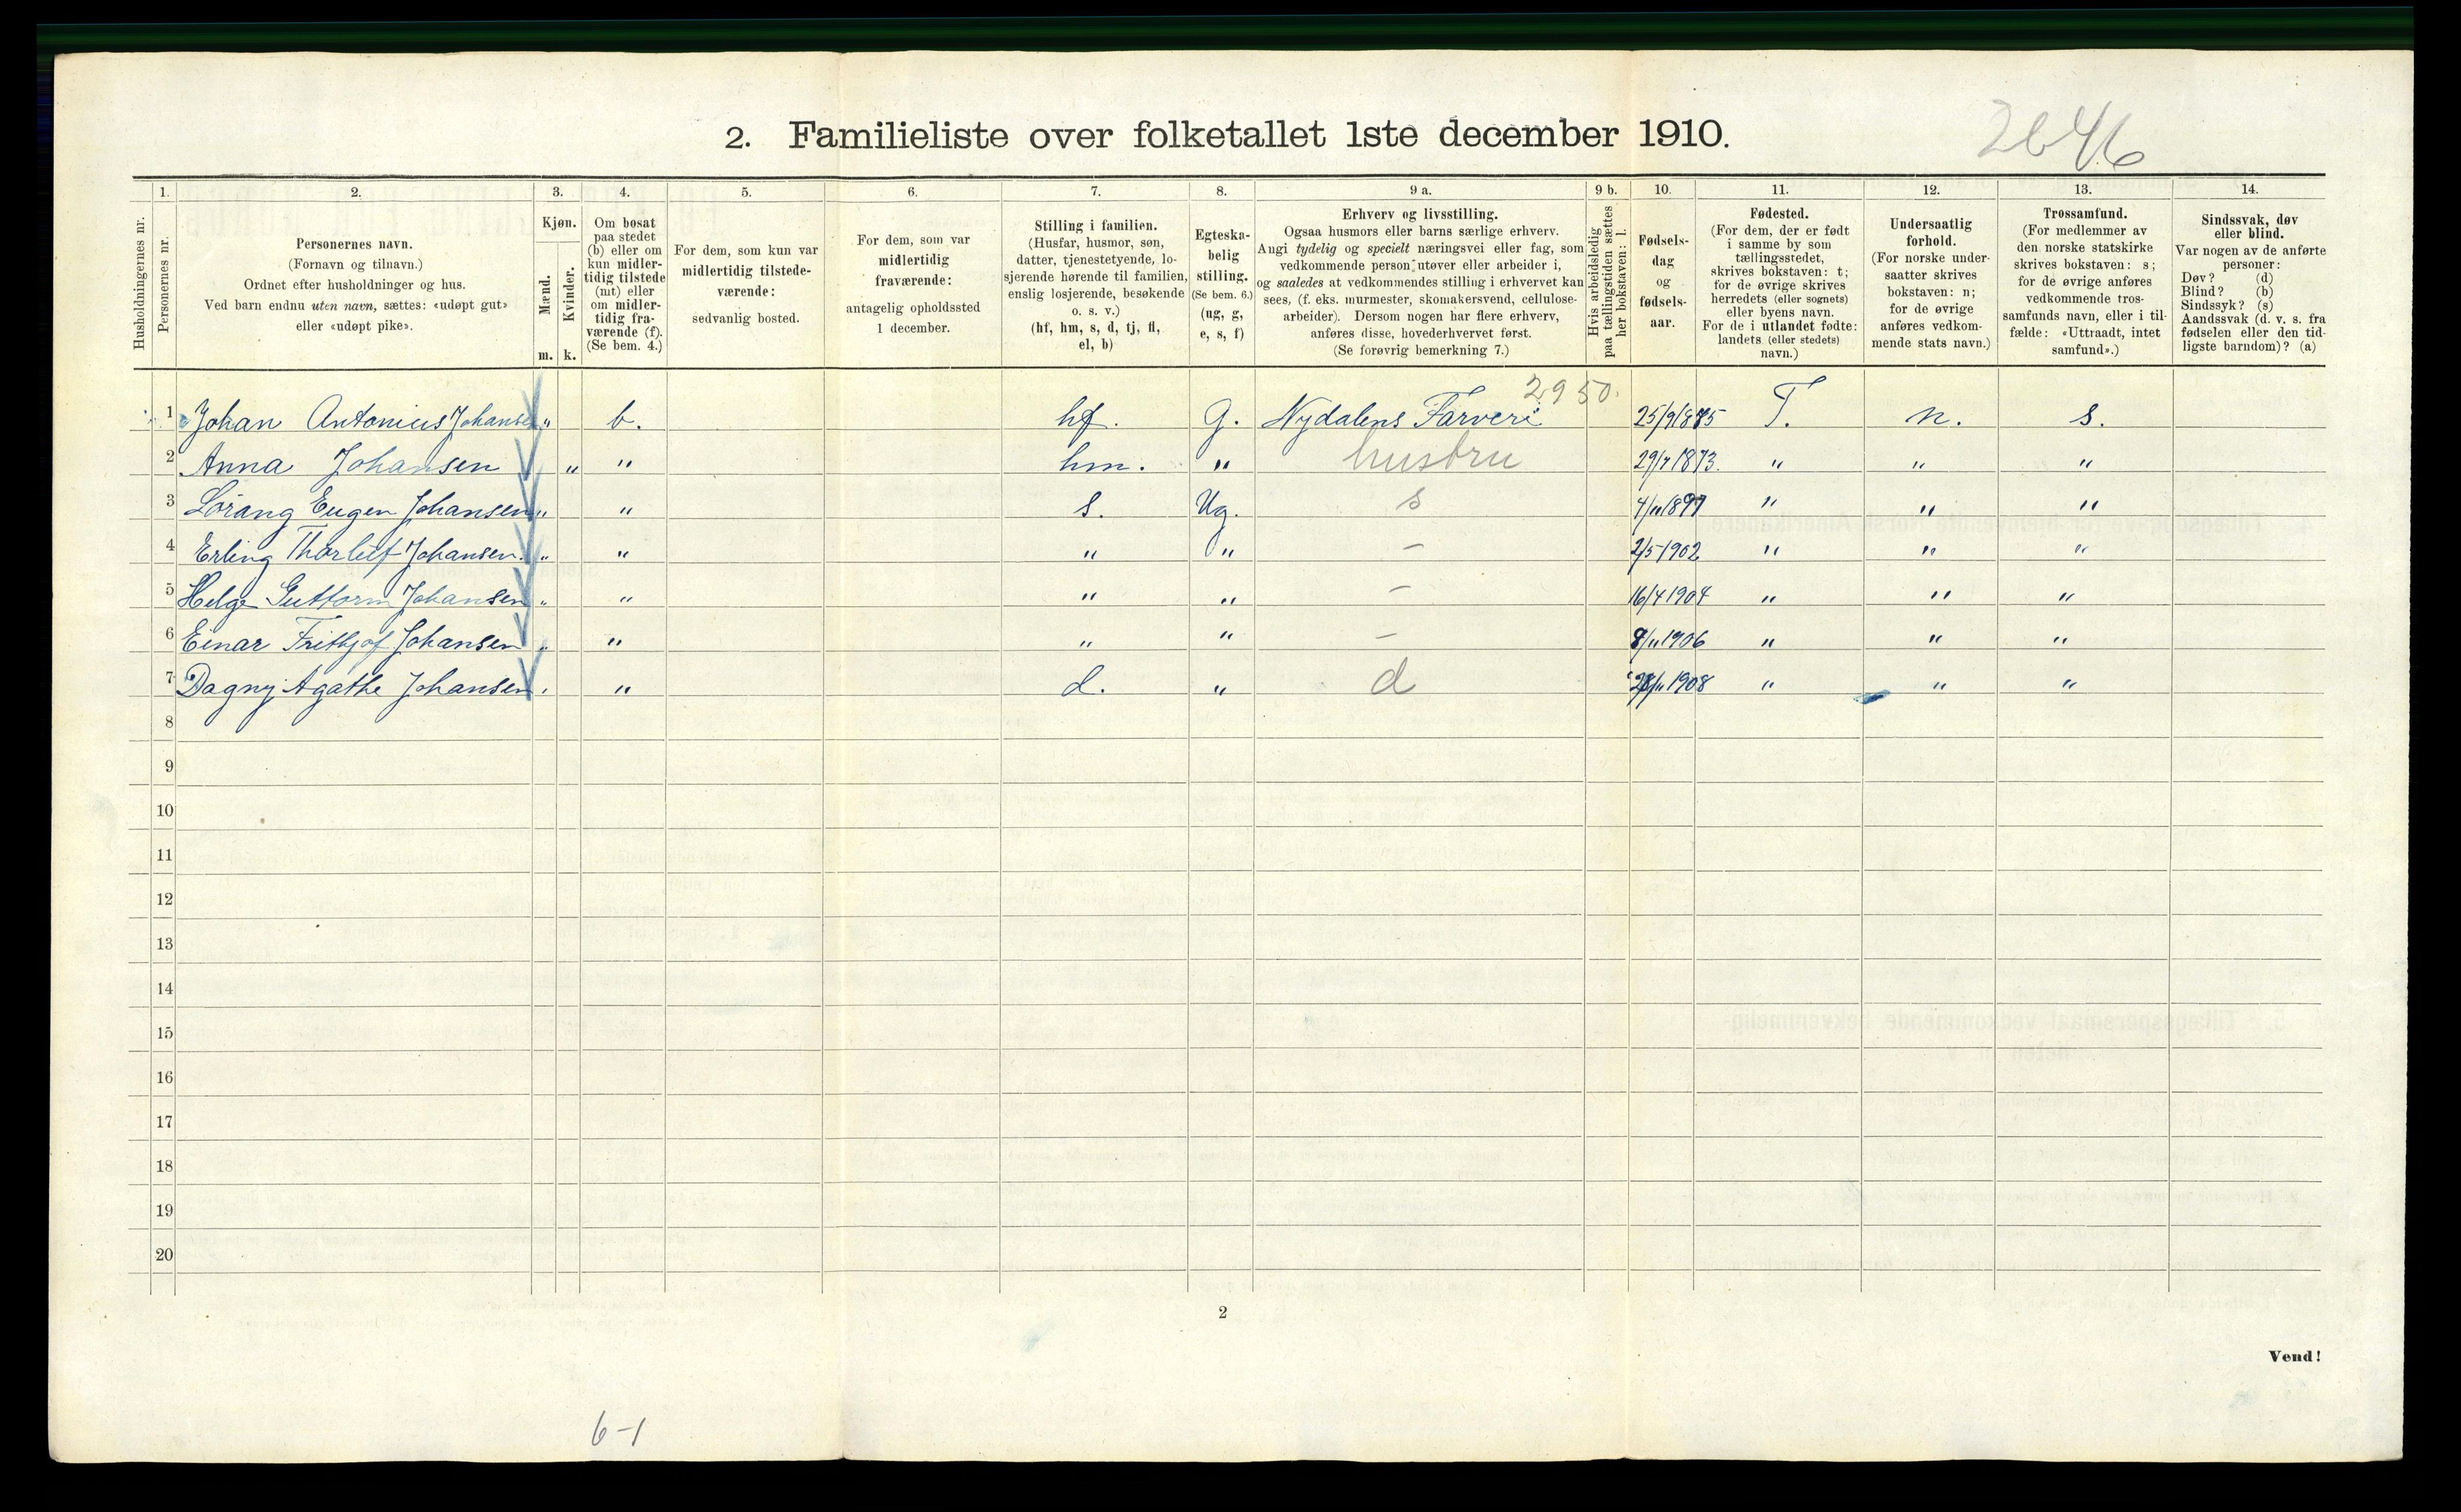 2. Familieliste over folketallet 1ste december 1910.
2646
1. 2. 3. 4. 5. 6. 7. 8. 9 a. 9 b. 10. 11. 12. 13. 14.
Husholdningernes nr.
Personernes nr.
Personernes navn.
(Fornavn og tilnavn.)
Ordnet efter husholdninger og hus.
Ved barn endnu uten navn, sættes: «udøpt gut»
eller «udøpt pike».
Kjøn.
Mænd.
Kvinder.
m. k.
Om bosat
paa stedet
(b) eller om
kun midler-
tidig tilstede
(mt) eller
om midler-
tidig fra-
værende (f).
(Se bem. 4.)
For dem, som kun var
midlertidig tilstede-
værende:
sedvanlig bosted.
For dem, som var
midlertidig
fraværende:
antagelig opholdssted
1 december.
Stilling i familien.
(Husfar, husmor, søn,
datter, tjenestetyende, lo-
sjerende hørende til familien,
enslig losjerende, besøkende
o. s. v.)
(hf, hm, s, d, tj, fl,
el, b)
Egteska-
belig
stilling.
(Se bem. 6.)
(ug, g,
e, s, f)
Erhverv og livsstilling.
Ogsaa husmors eller barns særlige erhverv.
Angi tydelig og specielt næringsvei eller fag, som
vedkommende person utøver eller arbeider i,
og saaledes at vedkommendes stilling i erhvervet kan
sees, (f. eks. murmester, skomakersvend, cellulose-
arbeider). Dersom nogen har flere erhverv,
anføres disse, hovederhvervet først.
(Se forøvrig bemerkning 7.)
Hvis arbeidsledig
paa tællingstiden sættes
her bokstaven: l.
Fødsels-
dag
og
fødsels-
aar.
Fødested.
(For dem, der er født
i samme by som
tællingsstedet,
skrives bokstaven: t;
for de øvrige skrives
herredets (eller sognets)
eller byens navn.
For de i utlandet fødte:
landets (eller stedets)
navn.)
Undersaatlig
forhold.
(For norske under-
saatter skrives
bokstaven: n;
for de øvrige
anføres vedkom-
mende stats navn.)
Trossamfund.
(For medlemmer av
den norske statskirke
skrives bokstaven: s;
for de øvrige anføres
vedkommende tros-
samfunds navn, eller i til-
fælde: «Uttraadt, intet
samfund».)
Sindssvak, døv
eller blind.
Var nogen av de anførte
personer:
Døv? (d)
Blind? (b)
Sindssyk? (s)
Aandssvak (d. v. s. fra
fødselen eller den tid-
ligste barndom)? (a)
2950.
1 Johan Antonius Johansen " b. hf. G. Nydalens Farveri 25/9 1875 T. n. s.
2 Anna Johansen " " hm. " hustru 29/7 1873. " " "
3 Lorang Eugen Johansen " " s. Ug. s 4/11 1897 " " "
4 Erling Thorleif Johansen. " " " " – 2/5 1902 " " "
5 Helge Guttorm Johansen " " " " – 16/4 1904 " " "
6 Einar Frithjof Johansen " " " " – 8/11 1906 " " "
7 Dagny Agathe Johansen " " d. " d /11 1908 " " "
8
9
10
11
12
13
14
15
16
17
18
19
20
2
Vend!
6-1